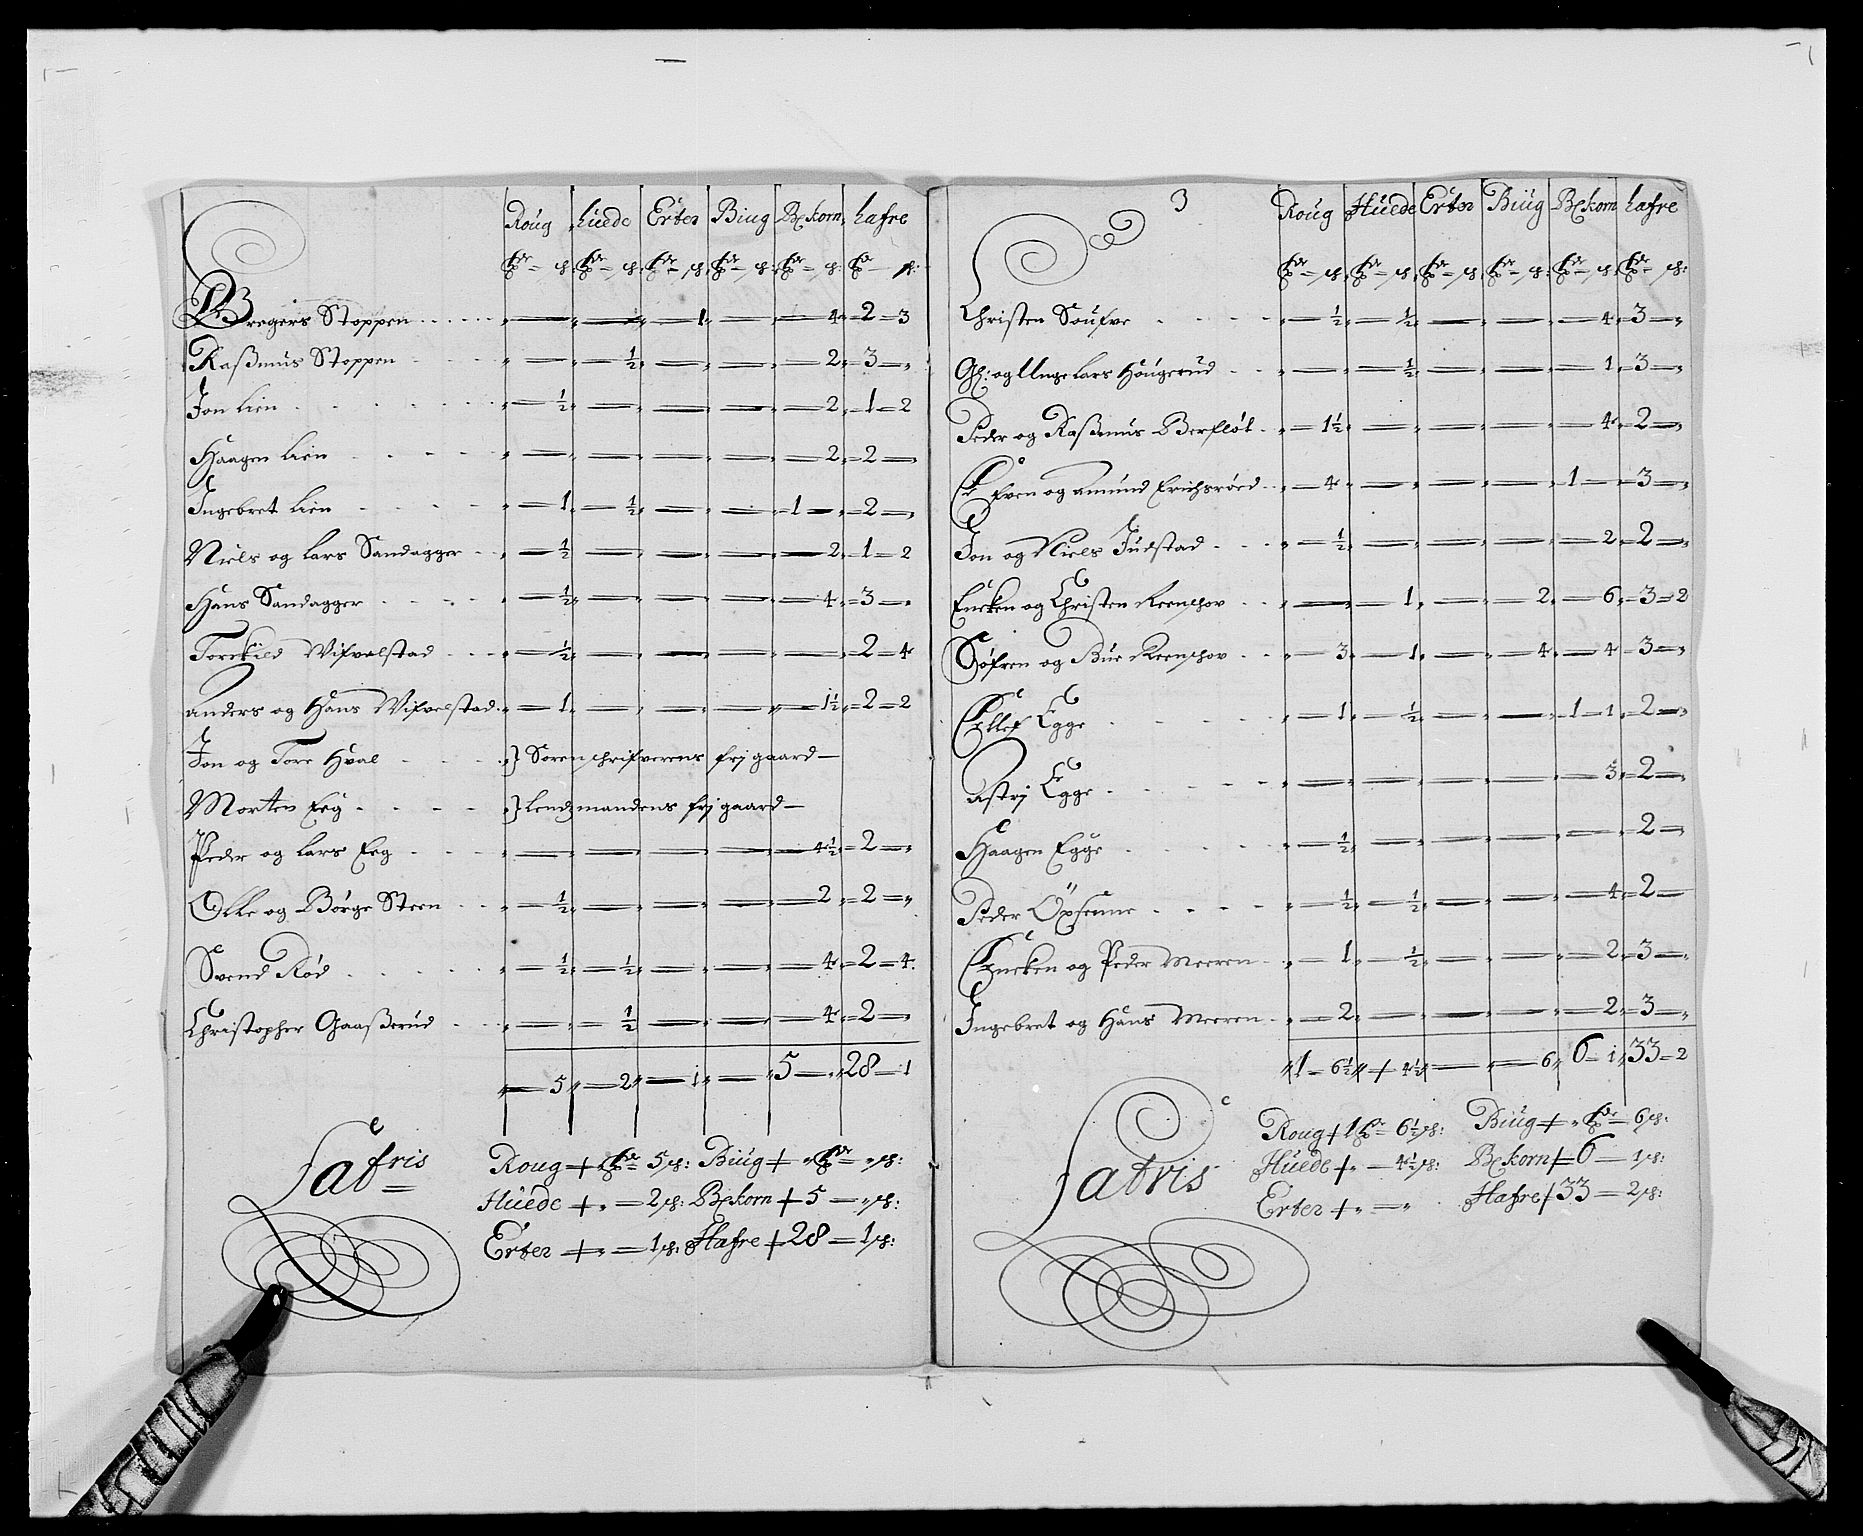 Roug Huede Erter Biug Blkorn hafre
Bregers Stoppen . . . — — 1 — 4 2 = 3
Rasmus Stoppen — ½ — — 2 3 —
Jon Lien . . . ½ — — — 2 1 = 2
Haagen Lien . . . — — — — 2 2 —
Ingebret Lien . . . 1 ½ — — 1 — 2 —
Niels og Lars Sandagger . . ½ — — — 2 1 = 2
Hans Sandagger . . . ½ — — — 4 3 —
Torckild Wifvelstad . . . ½ — — — — 2 = 4
anders og Hans Wifvelstad . 1 — — — 1½ 2 = 2
Jon og Tore Hval . . . } Sorenschrifverens frj gaard —
Morten Eeg . . . } Lendzmandens frj gaard —
Peder og Lars Eeg . . . — — — — 4½ 2 —
Olle og Børge Steen . . ½ — — — 2 2 —
Svend Rød . . . ½ ½ — — 4 2 = 4
Christopher Gaaßerud . . — ½ — — 4 2 —
5 2 1 — 5 — 28 = 1
Latris
Roug + 5 Biug +
Huede + 2 Blkorn + 5 —
Erter + 1 Hafre + 28 = 1
3
Roug Huede Erter Biug Blkorn hafre
Christen Soufve . . . ½ ½ — — 4 3 —
Gl: og Unge Lars Haugerud . . — ½ — — 1 3 —
Peder og Rasmus Berfløt . 1½ — — — 4 2 —
Even og amund Erichsrøed . 4 — — — 1 — 3 —
Jon og Niels Judstad . . . ½ — — — 2 2 —
Encken og Christen Reenschov . . — 1 — 2 6 3 = 2
Søfren og Bue Reenschov . . 3 1 — 4 4 3 —
Ellef Egge . . . 1 ½ — — 1 = 1 2 —
Astrj Egge . . . — — — — 3 2 —
Haagen Egge . . . ½ — — — — 2 —
Peder Opsenne . . . ½ ½ — — 4 2 —
Encken og Peder Meeren . . 1 ½ — — 2 3 —
Ingebret og Hans Meeren . . 2 — — — 2 3 —
1 = 6½ 4½ — 6 6 = 1 33 = 2
Latris
Roug + 1 = 6½ Biug + 6
Huede + 4½ Blkorn + 6 — 1
Erter + — Hafre + 33 = 2